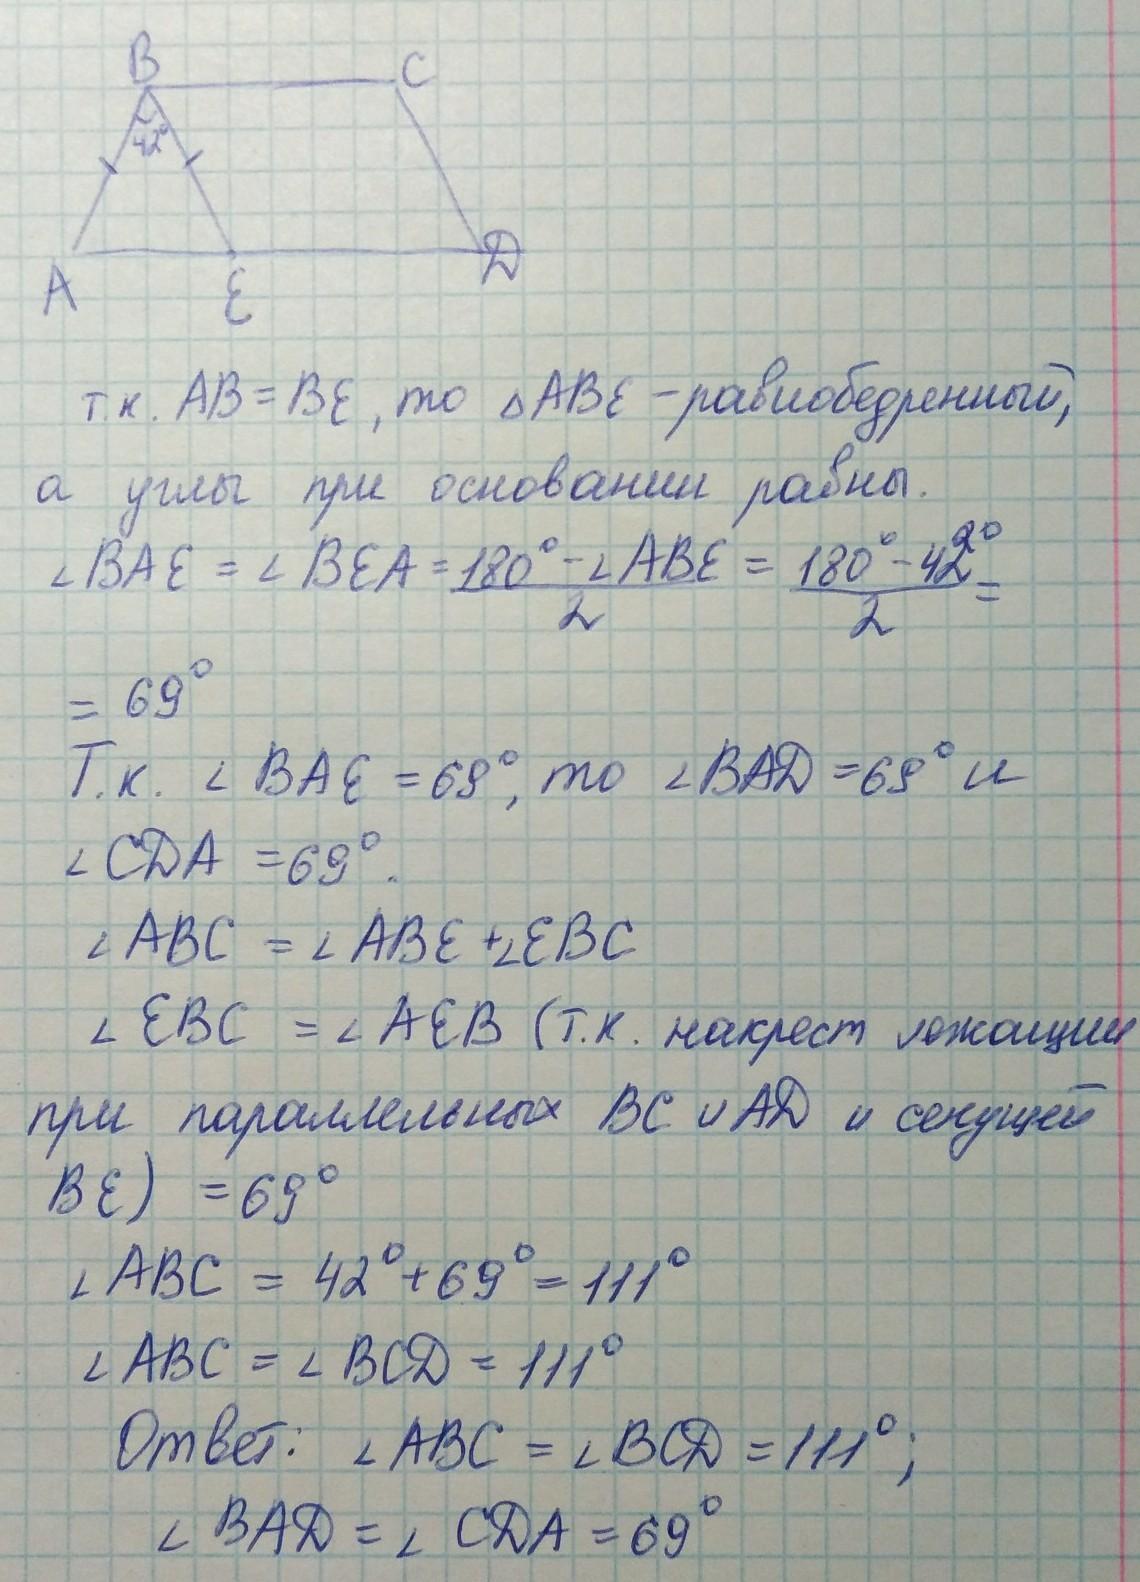 B C
42°
A E D
т.к. AB = BE, то △ABE - равнобедренный,
а углы при основании равны.
∠BAE = ∠BEA = (180° - ∠ABE)/2 = (180° - 42°)/2 =
= 69°
Т.к. ∠BAE = 69°, то ∠BAD = 69° и
∠CDA = 69°.
∠ABC = ∠ABE + ∠EBC
∠EBC = ∠AEB (т.к. накрест лежащии
при параллельных BC и AD и секущей
BE) = 69°
∠ABC = 42° + 69° = 111°
∠ABC = ∠BCD = 111°
Ответ: ∠ABC = ∠BCD = 111°;
∠BAD = ∠CDA = 69°